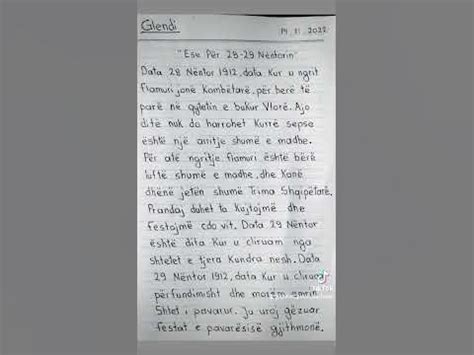 Glendi
14.11.2022
"Ese Për 28-29 Nëntorin"
Data 28 Nëntor 1912, data Kur u ngrit
flamuri jonë Kombëtarë, për herë të
parë në qytetin e bukur Vlorë. Ajo
ditë nuk do harrohet Kurrë sepse
është një arritje shumë e madhe.
Për atë ngritje flamuri është bërë
luftë shumë e madhe, dhe Kanë
dhënë jetën shumë Trima Shqipëtarë.
Prandaj duhet ta Kujtojmë dhe
festojmë cdo vit. Data 29 Nëntor
është dita Kur u cliruam nga
shtetet e tjera Kundra nesh. Data
29 Nëntor 1912, data Kur u cliruam
përfundimisht dhe morëm emrin
Shtet i pavarur. Ju uroj gëzuar
festat e pavarësisë gjithmonë.